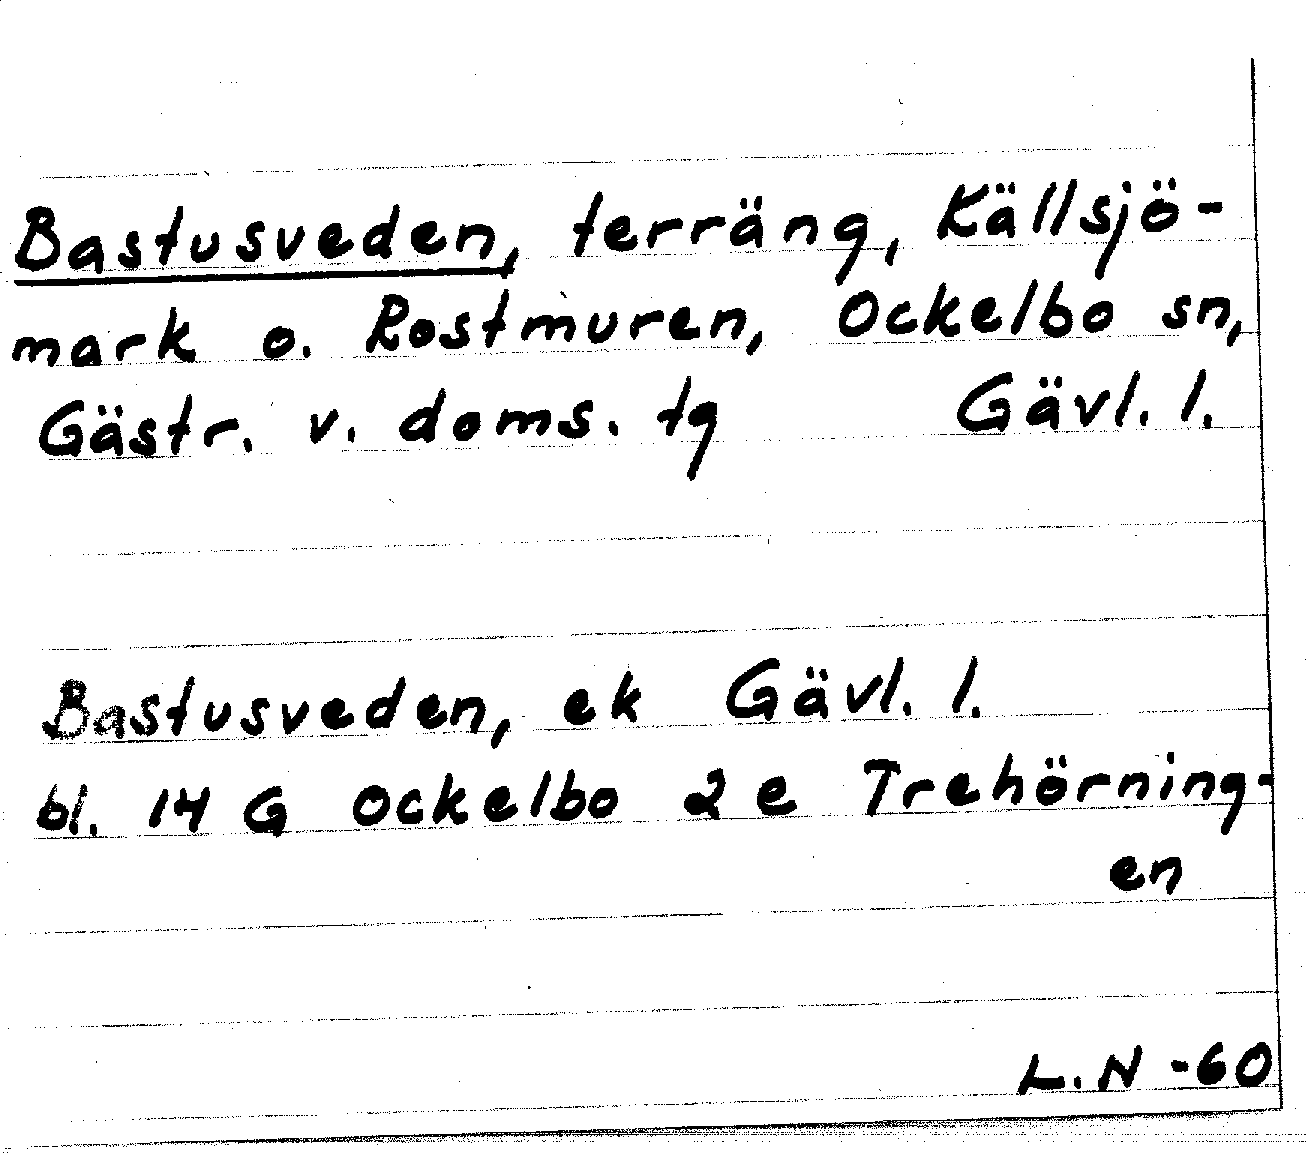 Bastusveden, terräng, Källsjö-
mark o. Rostmuren, Ockelbo sn,
Gästr. v. doms. tg Gävl. l.
Bastusveden, ek Gävl. l.
bl. 14 G Ockelbo 2 e Trehörning-
en
L.N -60